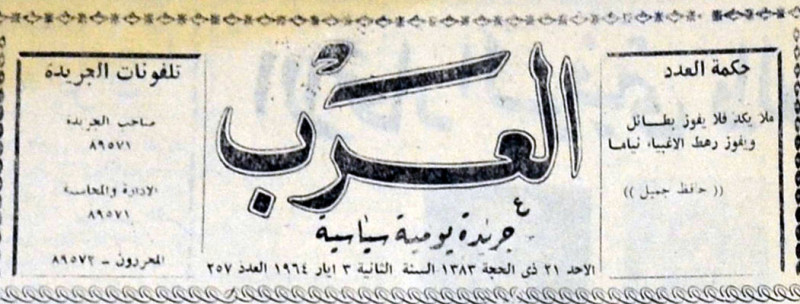 حكمة العدد
ملا يكد فلا يفوز بطائل
ويفوز رهط الاغبياء نياما
(( حافظ جميل ))
العرب
جريدة يومية سياسية
الاحد ٢١ ذى الحجة ١٣٨٣ السنة الثانية ٣ ايار ١٩٦٤ العدد ٢٥٧
تلفونات الجريدة
صاحب الجريدة
٨٩٥٧١
الادارة والمحاسبة
٨٩٥٧١
المحررون ـ ٨٩٥٧٢